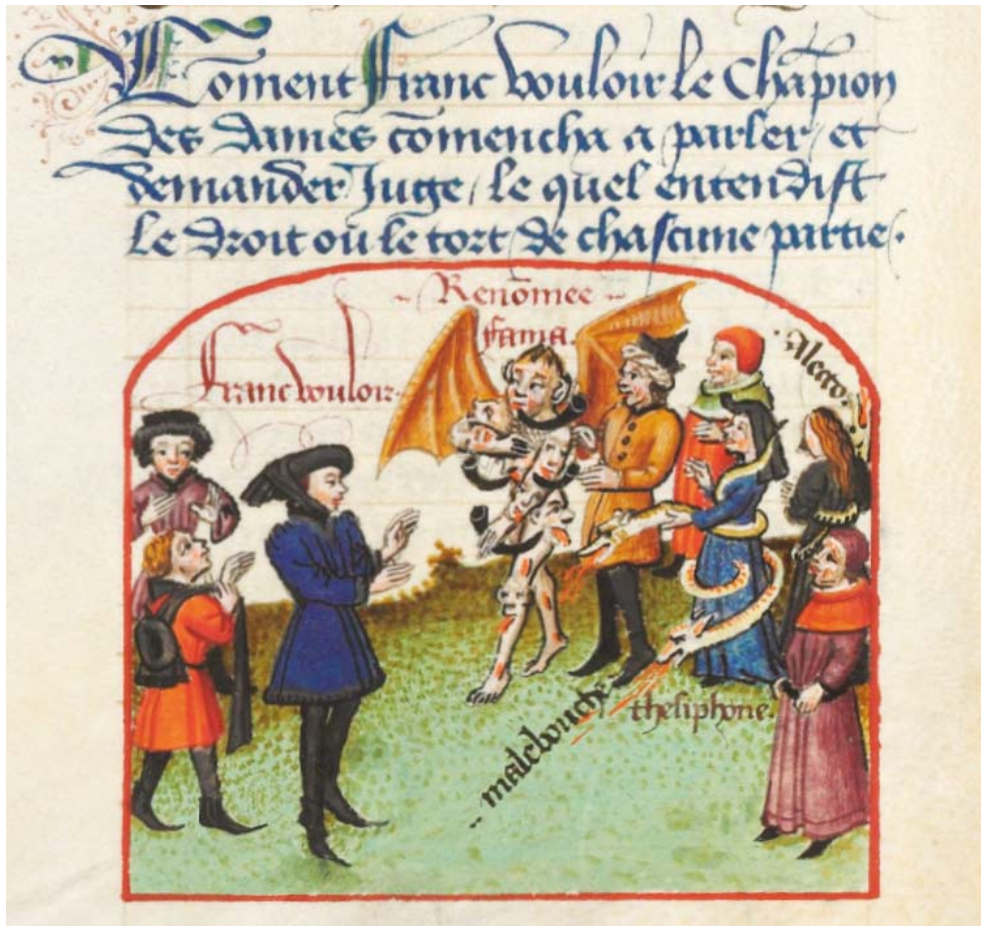 Coment franc vouloir le Chãpion
des dames cõmencha a parler / et
demander Juge / le quel entendist
le droit ou le tort de chascune partie.
Renõmee
fama.
franc vouloir.
Alecto.
malebouche
thesiphone.